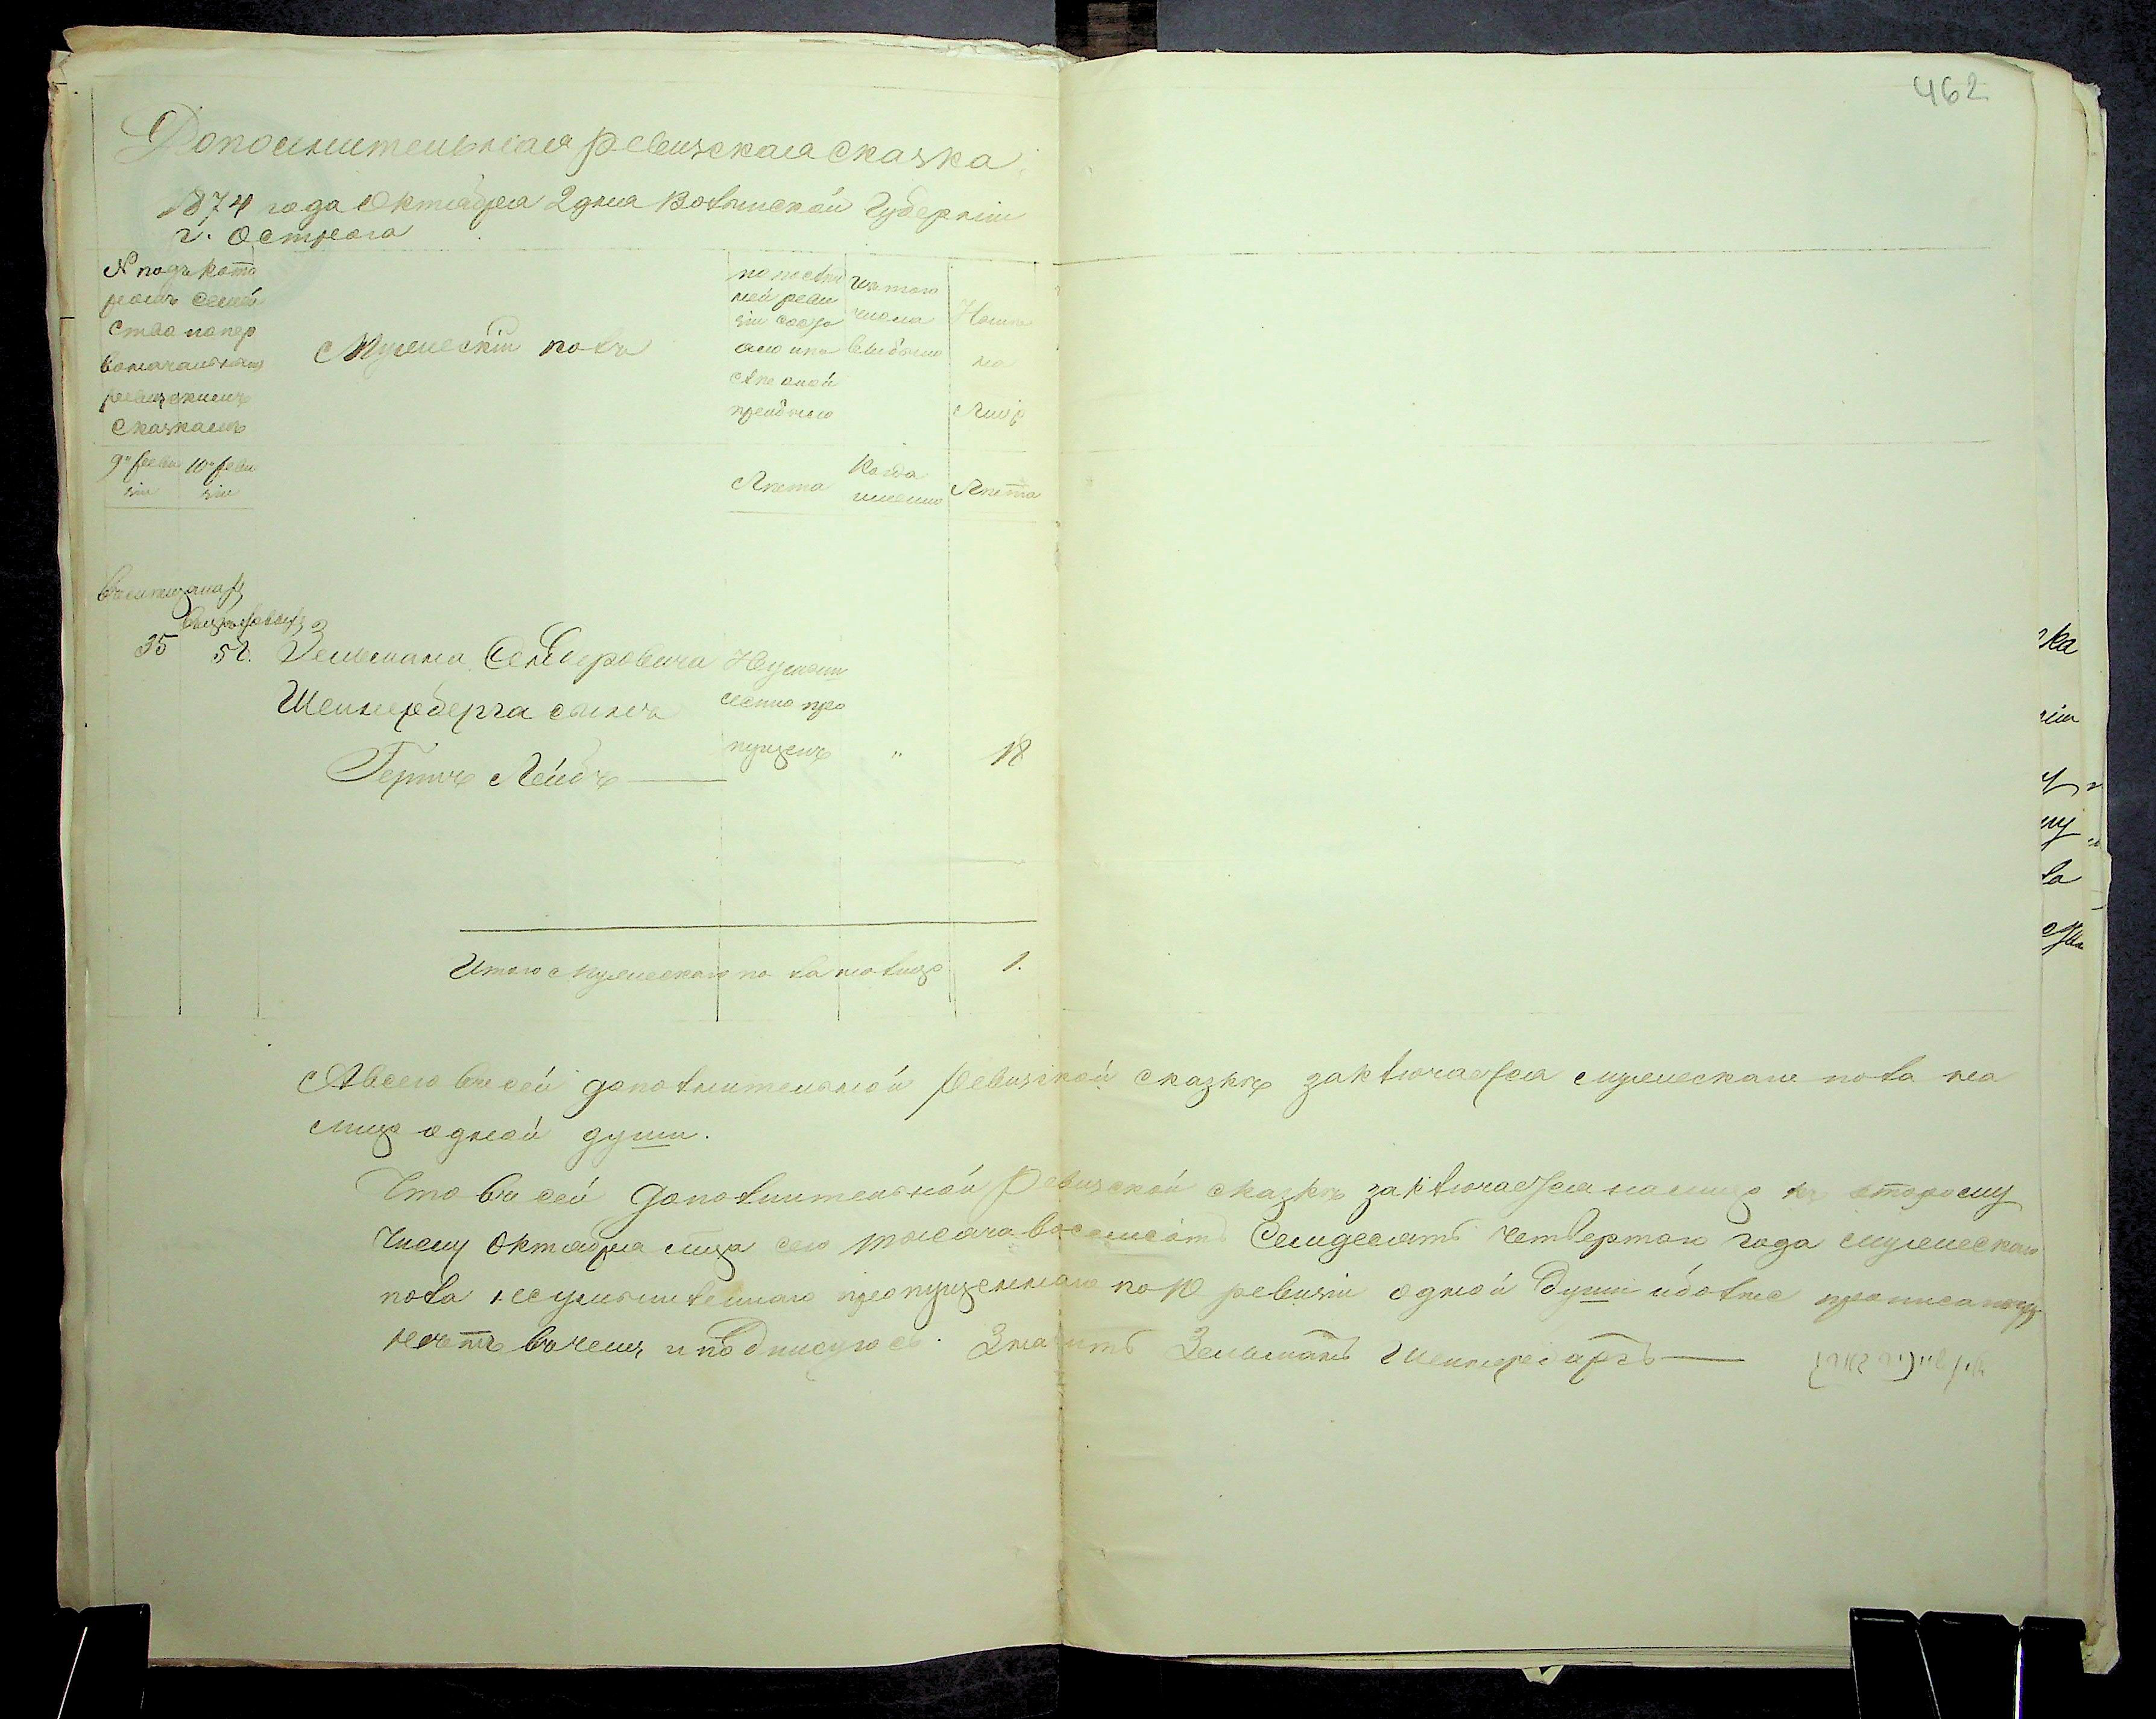 462
Дополнительная ревизская сказка
1874 года Октября 2 дня Волынской Губерніи
г. Острога
№ подъ кото
рымъ семей
ство по пер
воначальнымъ
ревизскимъ
сказкамъ
Мужескій полъ
по послѣд
ней реви
зіи состо
яло или
послѣ оной
прибыло
изъ того
числа
выбыло
Нынѣ
на
лицѣ
9й реви
зіи
10й реви
зіи
Лѣта
Когда
именно
Лѣта
35
58.
Зельмана
Шейнерберга сынъ
Гершъ Лейбъ
Неумыш
ленно про
пущенъ
"
18
Итого мужескаго пола на лицо
1.
А всего въ сей дополнительной ревизской сказкѣ заключается мужескаго пола на
лицо одной души.
Что въ сей дополнительной Ревизской сказкѣ заключается на лицо къ второму
числу Октября мца сего тысяча восемьсотъ Семидесятъ четвертаго года мужескаго
пола неумышленнаго пропущеннаго по 10 ревизіи одной души и болѣе
нѣтъ въ чемъ и подписуюсь. Значитъ Зельманъ
ка